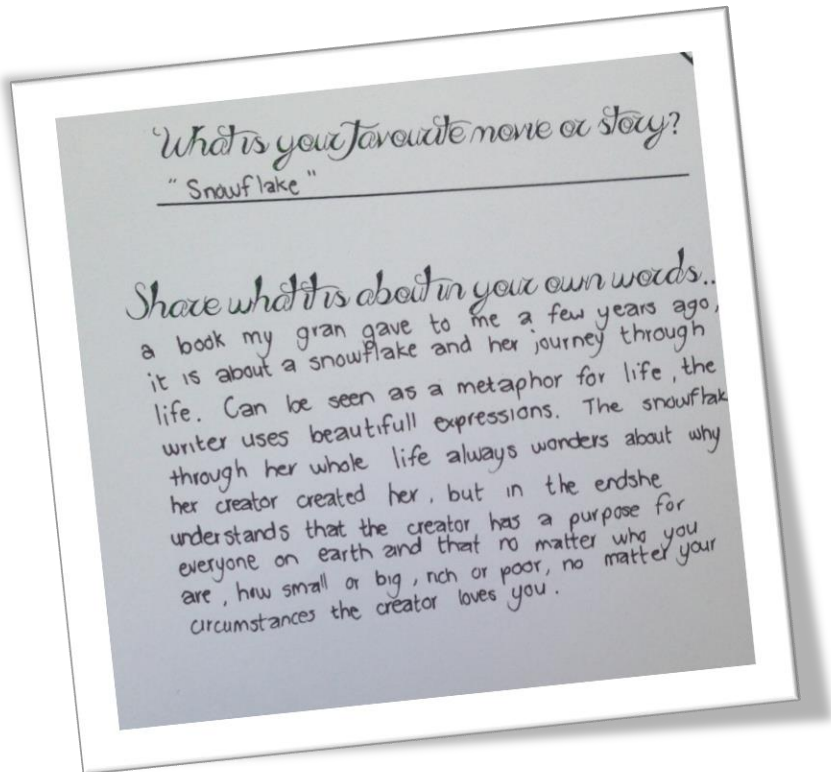 What is your favourite movie or story?
"Snowflake"
Share what it is about in your own words..
a book my gran gave to me a few years ago,
it is about a snowflake and her journey through
life. Can be seen as a metaphor for life, the
writer uses beautifull expressions. The snowflak
through her whole life always wonders about why
her creator created her, but in the endshe
understands that the creator has a purpose for
everyone on earth and that no matter who you
are, how small or big, rich or poor, no matter your
circumstances the creator loves you.